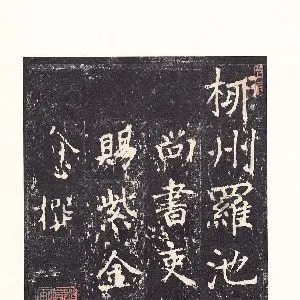 柳州羅池
尚書吏
賜紫金
愈撰